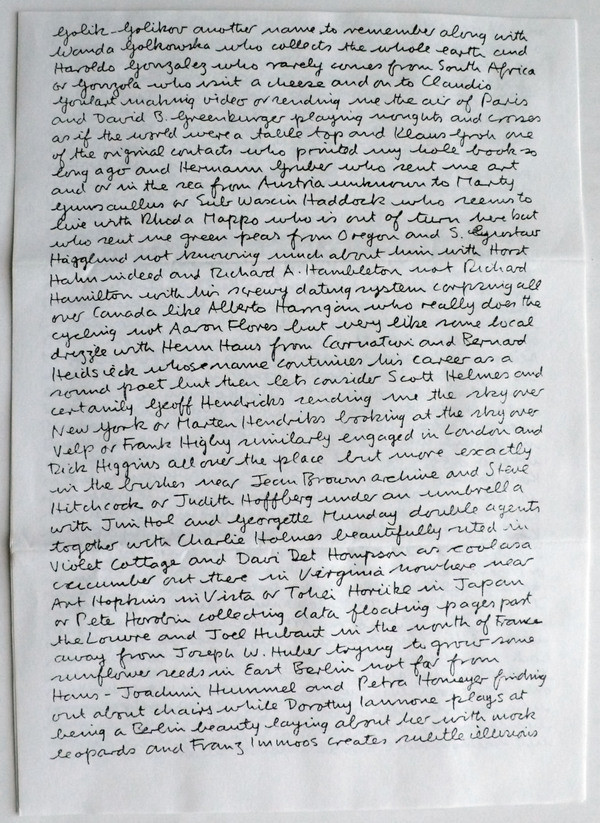 Golik-Golikov another name to remember along with
Wanda Golkowska who collects the whole earth and
Haroldo Gonzalez who rarely comes from South Africa
or Gonzola who isnt a cheese and on to Claudio
Goulart making video or sending me the air of Paris
and David B. Greenburger playing noughts and crosses
as if the world were a table top and Klaus Groh one
of the original contacts who printed my hole book so
long ago and Hermann Gruber who sent me art
and or in the sea from Austria unknown to Marty
Gunsaullus or Sub Wascin Haddock who seems to
live with Rhoda Mappo who is out of turn here but
who sent me green peas from Oregon and S. Gustav
Hägglund not knowing much about him with Horst
Hahn indeed and Richard A. Hambleton not Richard
Hamilton with his screwy dating system corpsing all
over Canada like Alberto Harrigan who really does the
cycling not Aaron Flores but very like some local
drizzle with Henn Haus from Carnation and Bernard
Heidsieck whose name continues his career as a
sound poet but then lets consider Scott Helmes and
certainly Geoff Hendricks sending me the sky over
New York or Marten Hendriks looking at the sky over
Velp or Frank Higby similarly engaged in London and
Dick Higgins all over the place but more exactly
in the bushes near Jean Browns archive and Steve
Hitchcock or Judith Hoffberg under an umbrella
with Jim Hol and Georgette Munday double agents
together with Charlie Holmes beautifully sited in
Violet Cottage and Davi Det Hompson as cool as a
cucumber out there in Virginia nowhere near
Art Hopkins in Vista or Tohei Horiike in Japan
or Pete Horobin collecting data floating pages past
the Louvre and Joel Hubaut in the north of France
away from Joseph W. Huber trying to grow some
sunflower seeds in East Berlin not far from
Hans-Joachim Hummel and Petra Homeyer finding
out about chairs while Dorothy Iannone plays at
being a Berlin beauty laying about her with mock
leopards and Franz Immoos creates subtle illusions